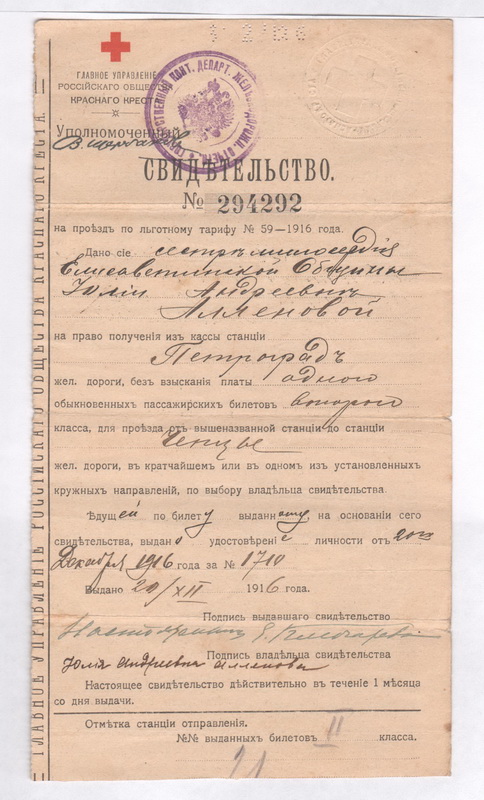 ГЛАВНОЕ УПРАВЛЕНІЕ
РОССІЙСКАГО ОБЩЕСТВА
КРАСНАГО КРЕСТА
Уполномоченный
СВИДѢТЕЛЬСТВО.
№ 294292
на проѣздъ по льготному тарифу № 59—1916 года.
Дано сіе сестрѣ милосердія
Елисаветинской Общины
Юліи Андреевнѣ
Аляновой
на право полученія изъ кассы станціи
Петроградъ
жел. дороги, безъ взысканія платы одного
обыкновенныхъ пассажирскихъ билетовъ второго
класса, для проѣзда отъ вышеназванной станціи до станціи
жел. дороги, въ кратчайшемъ или въ одномъ изъ установленныхъ
кружныхъ направленій, по выбору владѣльца свидѣтельства
Ѣдущей по билету выданному на основаніи сего
свидѣтельства, выдано удостовѣреніе личности отъ 20го
Декабря 1916 года за № 1710
Выдано 20/XII 1916 года.
Подпись выдавшаго свидѣтельство
Подпись владѣльца свидѣтельства
Юлія Андреевна Алянова
Настоящее свидѣтельство дѣйствительно въ теченіе 1 мѣсяца
со дня выдачи.
Отмѣтка станціи отправленія.
№№ выданныхъ билетовъ II класса.
21
ГЛАВНОЕ УПРАВЛЕНІЕ РОССІЙСКАГО ОБЩЕСТВА КРАСНАГО КРЕСТА